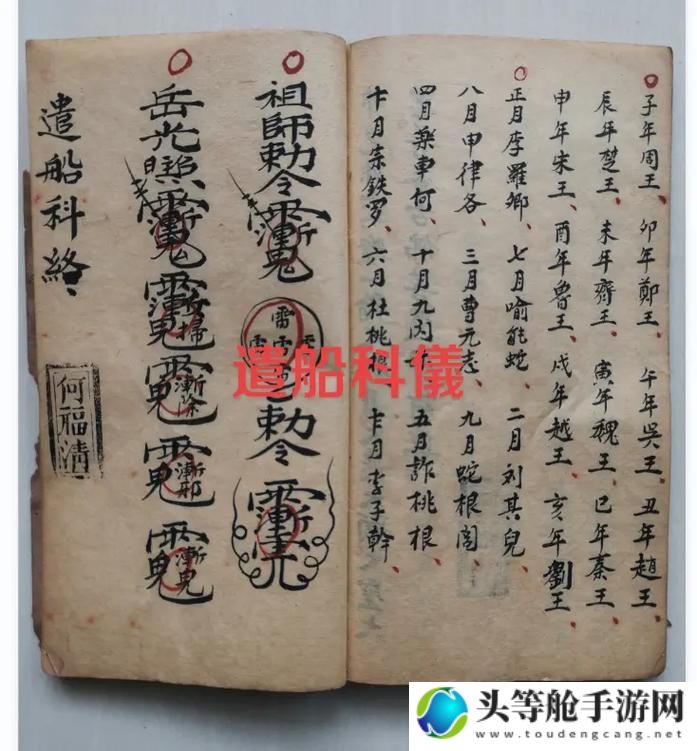 子年周王、卯年鄭王、午年吳王、丑年趙王、
辰年楚王、未年齊王、寅年魏王、巳年秦王、
申年宋王、酉年魯王、戌年越王、亥年劉王、
正月李羅卿、七月喻能蛇、二月刘其兒、
八月申律各、三月曹元志、九月蛇根閻、
四月桒車何、十月九丙、五月詐桃根、
十一月崇鉄罗、六月杜桃根、十二月李子幹、
祖師勅令 雷 勅令
岳光
遣船科終、
何福清
遣船科儀
头等舱手游网
www.toudengcang.net